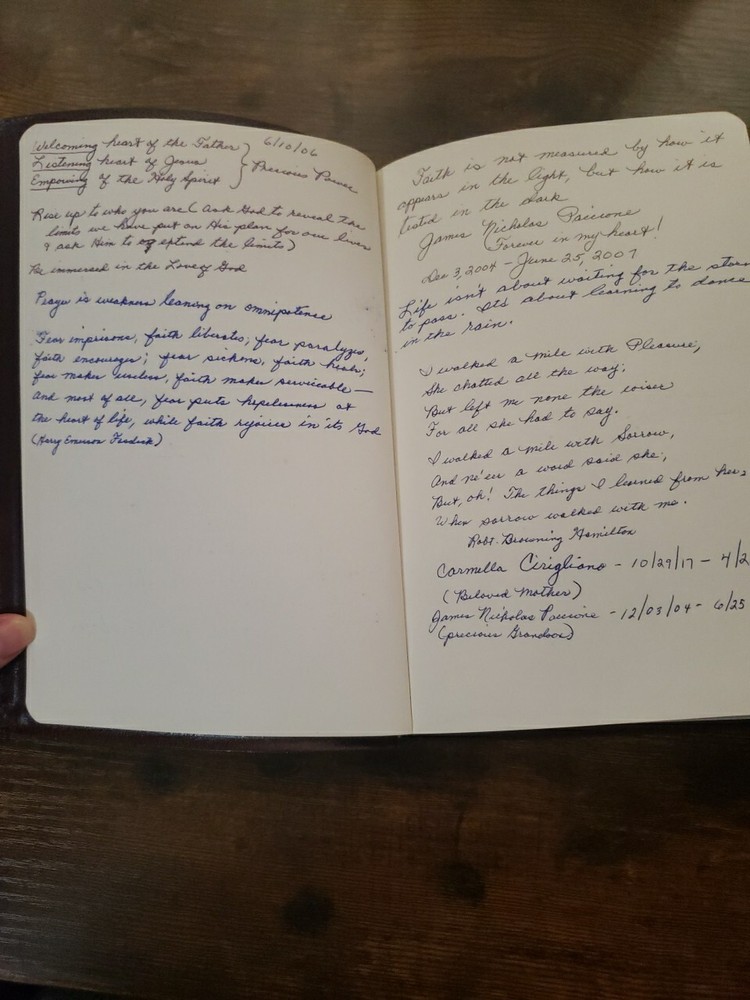 Welcoming heart of the Father } 6/10/06
Listening heart of Jesus } Precious Power
Empowing of the Holy Spirit
Rise up to who you are (ask God to reveal the
limits we have put on His plan for our lives
& ask Him to extend the limits)
Be immersed in the Love of God
Prayer is weakness leaning on omnipotence
Fear imprisons, faith liberates; fear paralyzes,
faith encourages; fear sickens, faith heals;
fear makes useless, faith makes serviceable —
and most of all, fear puts hopelessness at
the heart of life, while faith rejoices in its God
(Harry Emerson Fosdick)
Faith is not measured by how it
appears in the light, but how it is
tested in the dark
James Nicholas Paccione
(Forever in my heart!
Dec 3, 2004 - June 25, 2007
Life isn't about waiting for the storm
to pass. It's about learning to dance
in the rain.
I walked a mile with Pleasure,
She chatted all the way.
But left me none the wiser
For all she had to say.
I walked a mile with Sorrow,
And ne'er a word said she;
But, oh! The things I learned from her,
When sorrow walked with me.
Robt. Browning Hamilton
Carmella Cirigliano - 10/29/17 - 4/2
(Beloved Mother)
James Nicholas Paccione - 12/03/04 - 6/25
(precious Grandson)